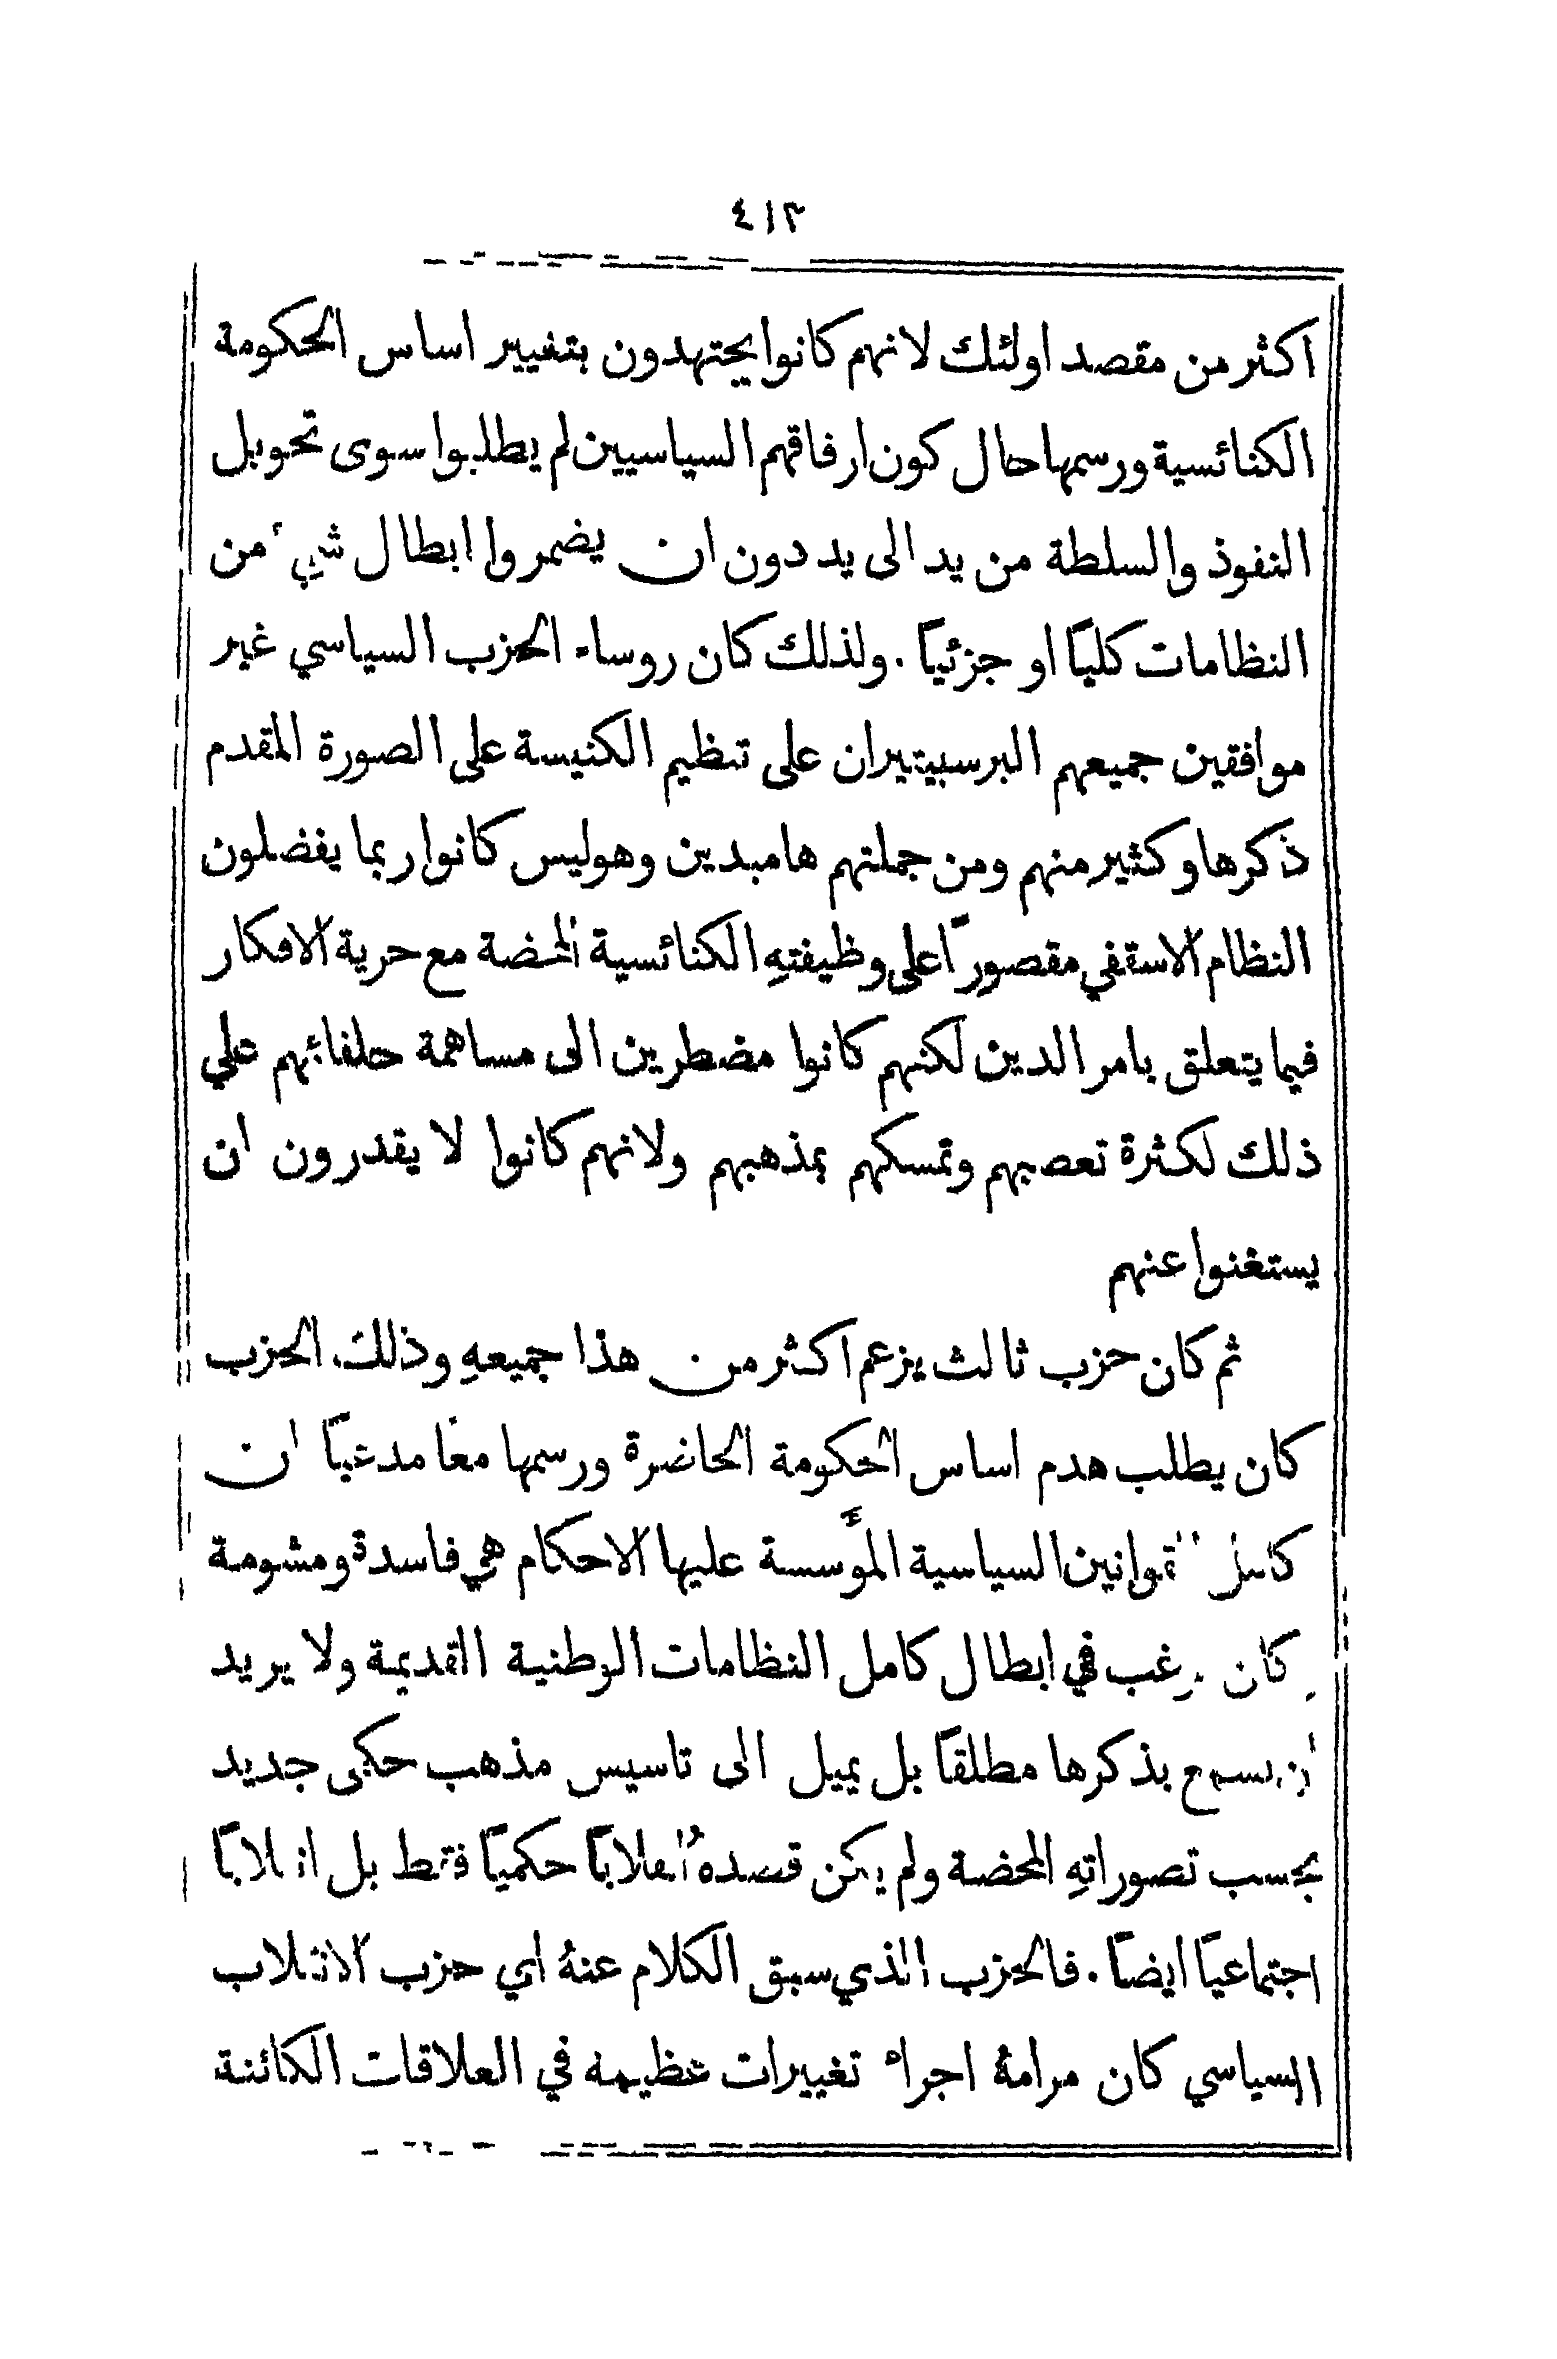 ٤١٣
اكثر من مقصد اولئك لانهم كانوا يجتهدون بتغيير اساس الحكومة
الكنائسية ورسمها حال كون ارفاقهم السياسيين لم يطلبوا سوى تحويل
النفوذ والسلطة من يد الى يد دون ان يضمروا ابطال شيء من
النظامات كليًا او جزئيًا . ولذلك كان روساء الحزب السياسي غير
موافقين جميعهم البرسبيتيران على تنظيم الكنيسة على الصورة المقدم
ذكرها وكثير منهم ومن جملتهم هامبدين وهوليس كانوا ربما يفضلون
النظام الاسقفي مقصورًا على وظيفتهِ الكنائسية المحضة مع حرية الافكار
فيما يتعلق بامر الدين لكنهم كانوا مضطرين الى مساهمة حلفائهم علي
ذلك لكثرة تعصبهم وتمسكهم بمذهبهم ولانهم كانوا لا يقدرون ان
يستغنوا عنهم
ثم كان حزب ثالث يزعم اكثر من هذا جميعهِ وذلك الحزب
كان يطلب هدم اساس الحكومة الحاضرة ورسمها معًا مدعيًا ان
كامل القوانين السياسية المؤَسسة عليها الاحكام هي فاسدة ومشومة
وكان يرغب في ابطال كامل النظامات الوطنية القديمة ولا يريد
ان يسمع بذكرها مطلقًا بل يميل الى تاسيس مذهب حكمي جديد
بحسب تصوراتهِ المحضة ولم يكن قصدهُ انقلابًا حكميًا فقط بل انقلابًا
اجتماعيًا ايضًا . فالحزب الذي سبق الكلام عنهُ اي حزب الانقلاب
السياسي كان مرامهُ اجراء تغييرات عظيمة في العلاقات الكائنة